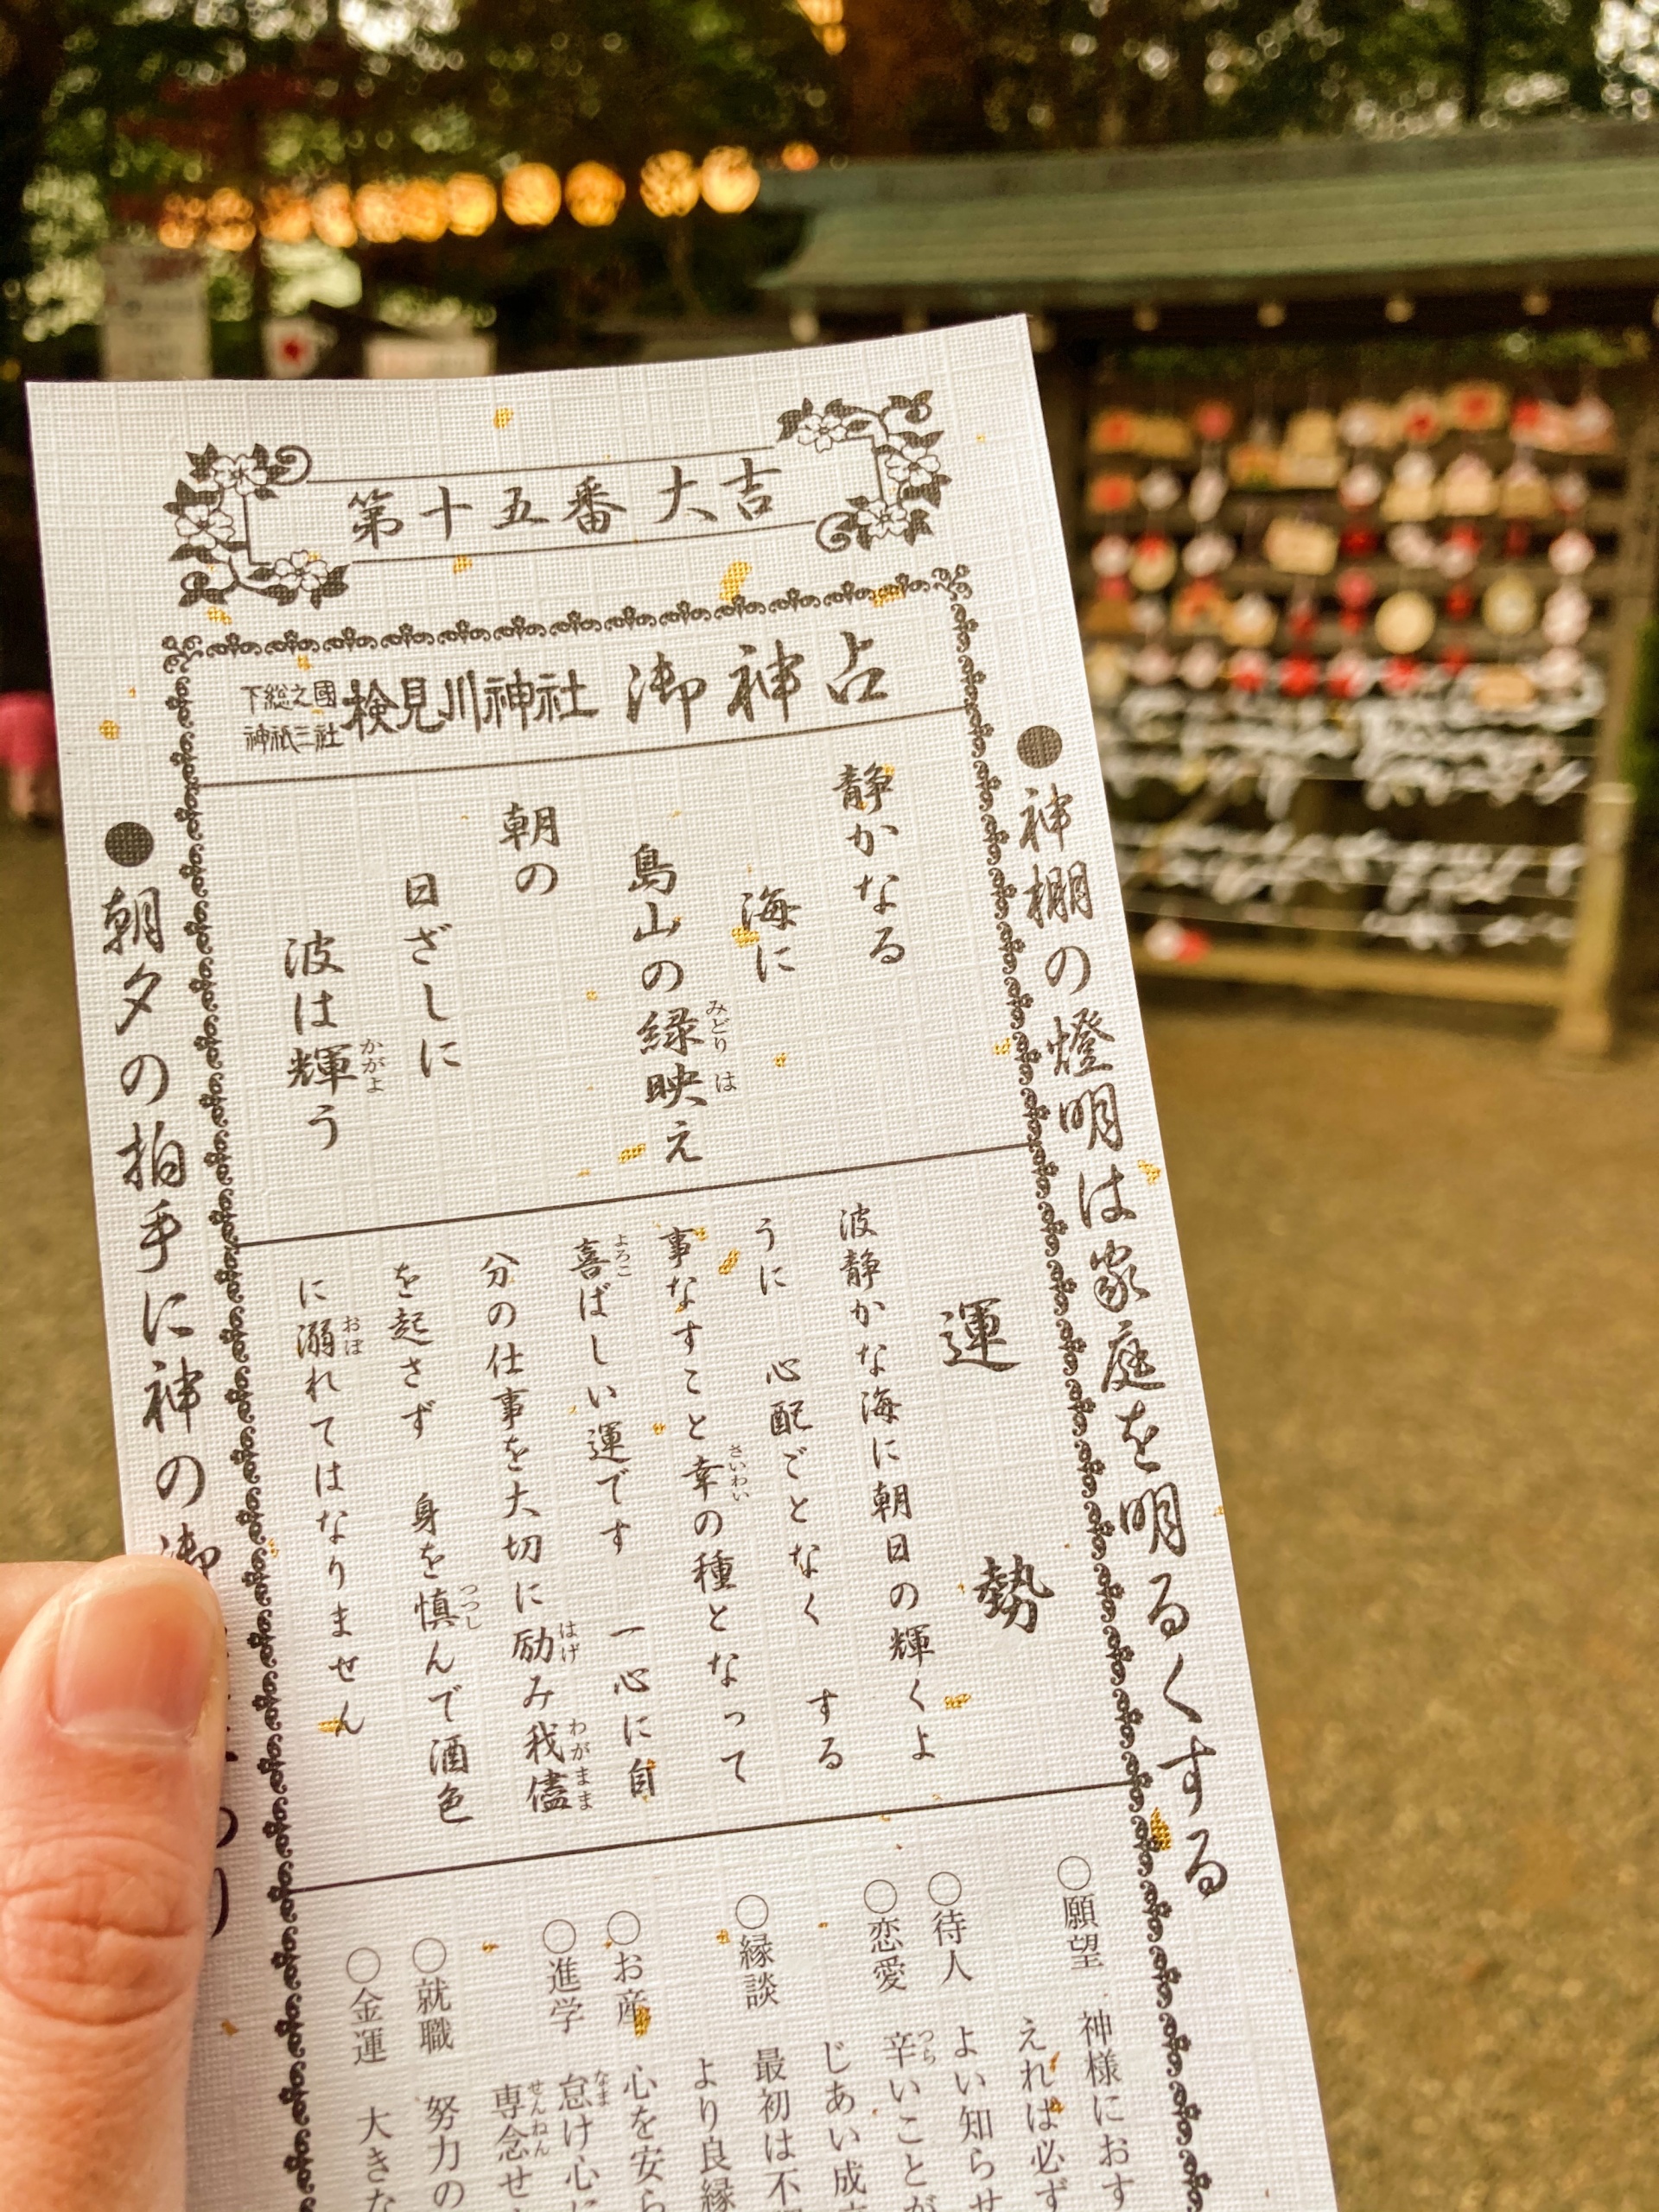 第十五番 大吉
下総之國
神祇三社
検見川神社 御神占
●神棚の燈明は家庭を明るくする
静かなる
海に
島山の緑映え
みどり は
朝の
日ざしに
波は輝う
かがよ
運勢
波静かな海に朝日の輝くよ
うに 心配ごとなく する
事なすこと幸の種となって
さいわい
喜ばしい運です 一心に自
よろこ
分の仕事を大切に励み我儘
はげ わがまま
を起さず 身を慎んで酒色
つつし
に溺れてはなりません
おぼ
○願望 神様におす
えれば必ず
○待人 よい知らせ
○恋愛 辛いことが
つら
じあい成
○縁談 最初は不
より良縁
○お産 心を安ら
○進学 怠け心に
なま
専念せ
せんねん
○就職 努力の
○金運 大きな
●朝夕の拍手に神の